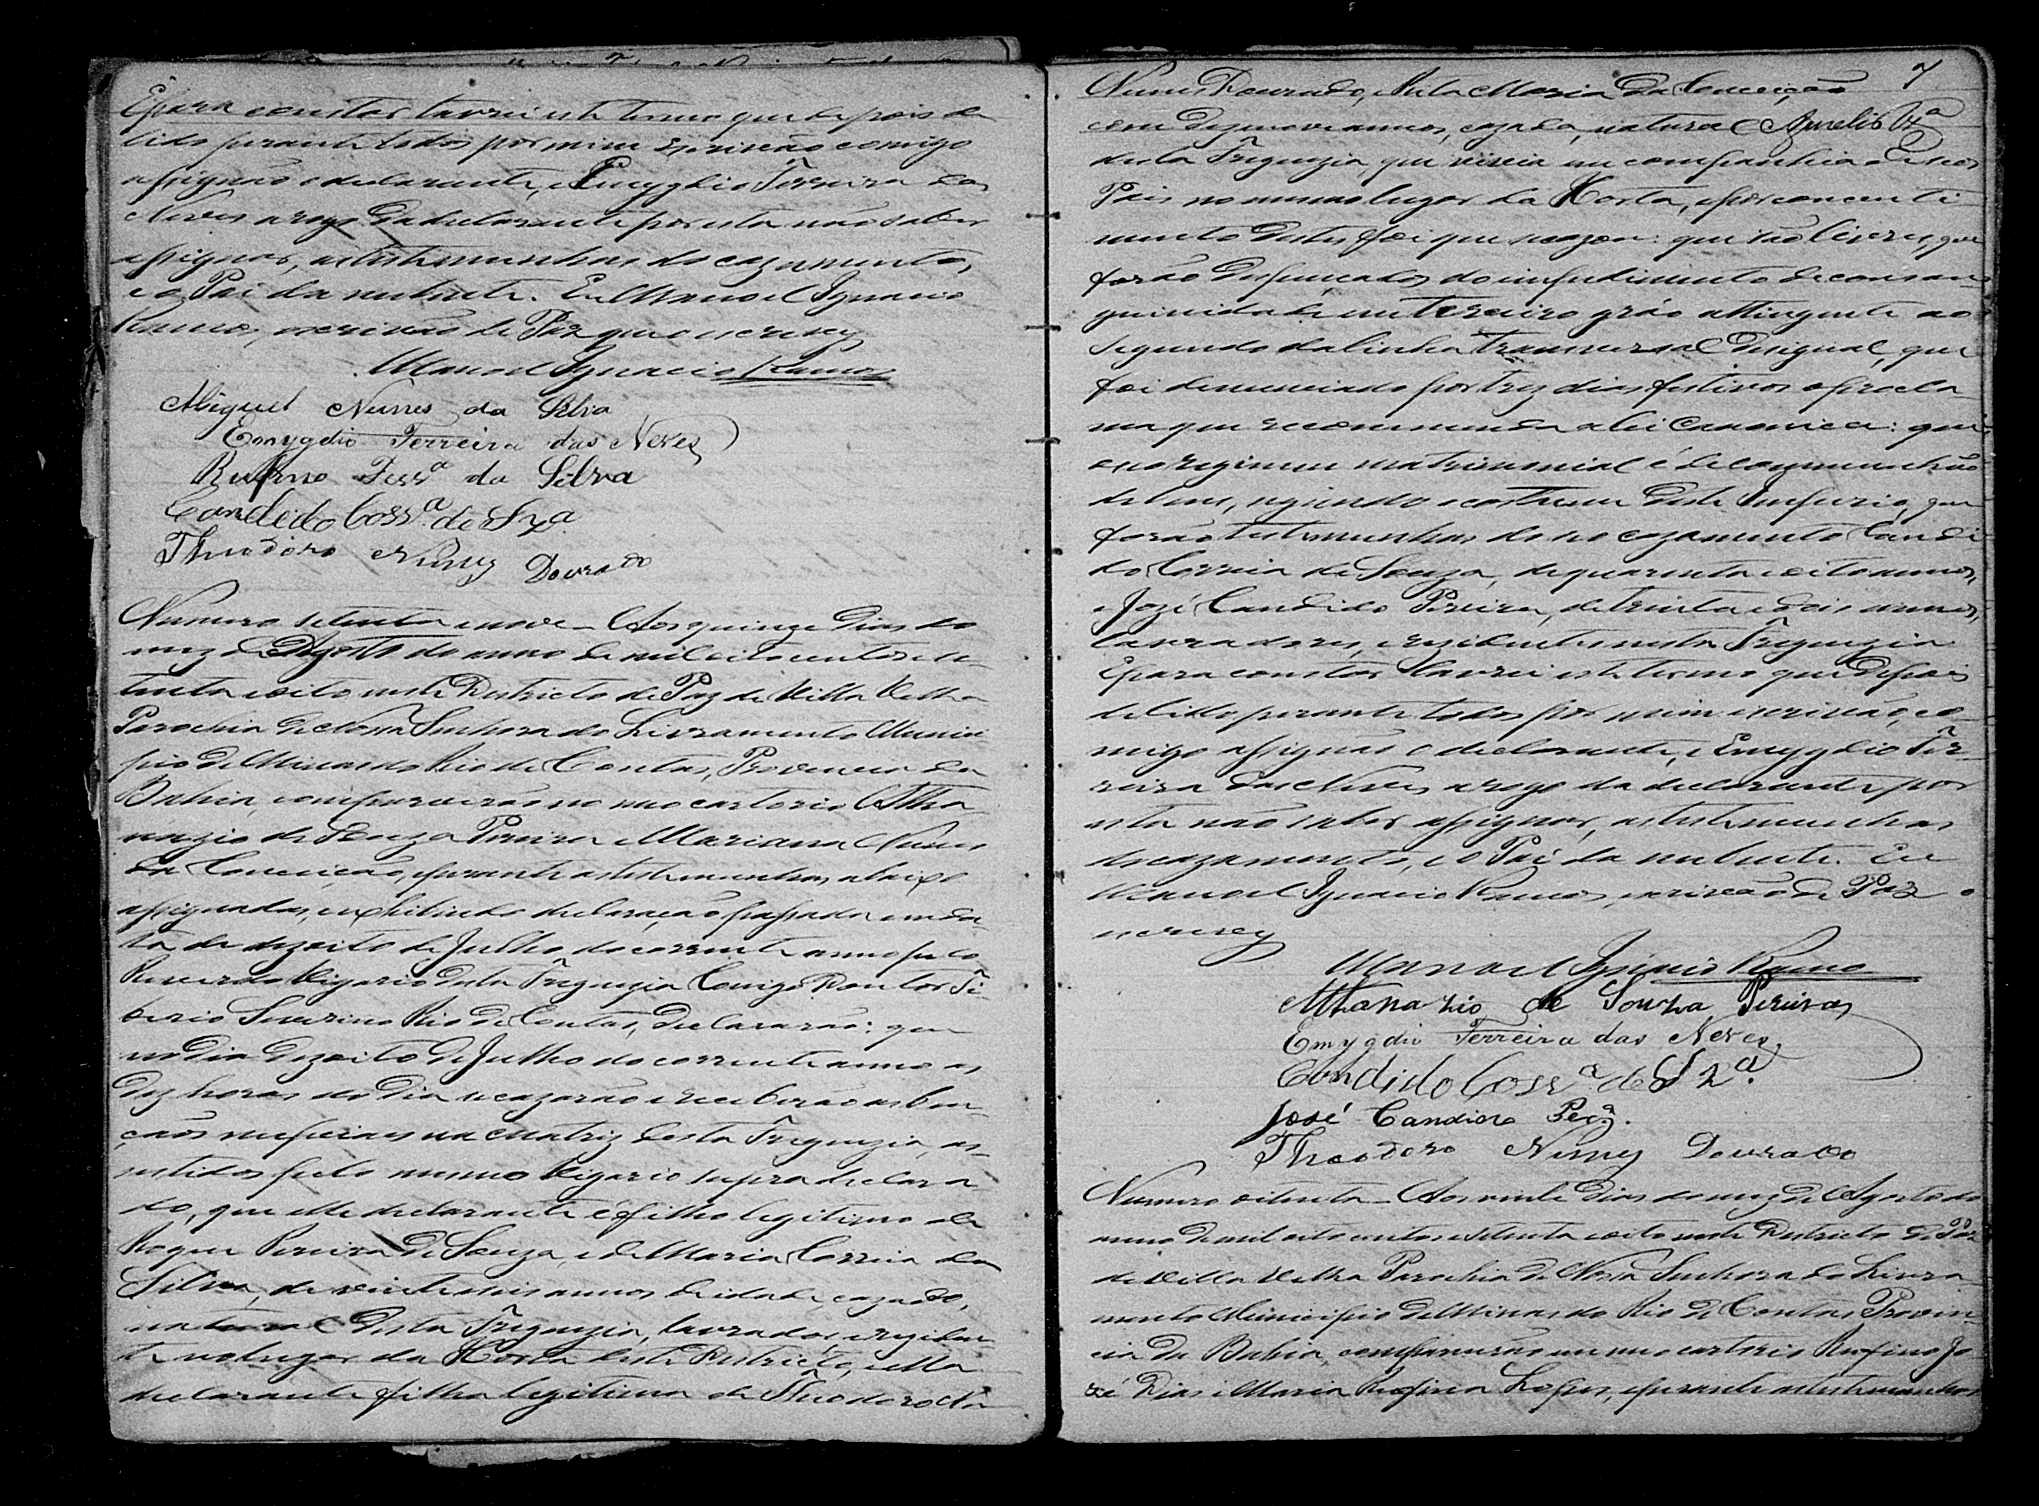 E para constar lavrei este termo que depois de
lido perante todos por mim Escrivão comigo
assignão o declarante, e Emygdio Ferreira das
Neves a rogo da declarante por esta não saber
assignar, as testemunhas do cazamento,
e o Pai da nubente. Eu Manoel Ignacio
Ramos, escrivão de Paz que o escrevy
Manoel Ignacio Ramos
Miguel Nunes da Silva
Emygdio Ferreira das Neves
Rufino Ferrª da Silva
Candido Corrª de Sza
Theodoro Nunes Dourado
Numero setenta e nove - Aos quinze dias do
mez de Agosto do anno de mil oito centos e se-
tenta e oito neste Districto de Paz de Villa Velha
Parochia de Nossa Senhora do Livramento Munici-
pio de Minas do Rio de Contas, Provincia da
Bahia, comparecerão no meo cartorio Atha-
nazio de Souza Pereira e Mariana Nunes
da Conceição, perante as testemunhas abaixo
assignadas, exhibindo declaração passada em da-
ta de dezoito de Julho do corrente anno pelo
Reverendo Vigario desta Freguezia Conigo Doutor Ti-
berio Severino Rio de Contas, declararão: que
no dia dezoito de Julho do corrente anno as
dez horas do dia se cazarão e receberão as ben-
çãos nupciaes na Matriz desta Freguezia, as-
sistidos pelo mesmo Vigario supra declara-
do, que elle declarante é filho legitimo de
Roque Pereira de Souza, e de Maria Correia da
Silva, de vinte seis annos de idade, cazado,
natural desta Freguezia, lavrador e reziden-
te no lugar da Horta deste Districto, e ella
declarante filha legitima de Theodoro
7
Nunes Dourado, e Rita Maria da Conceição
com dezenove annos, cazada, natural
desta Freguezia, que vivia em companhia de seos
Pais no mesmo lugar da Horta, e por concenti-
mento destes foi que se cazou: que são livres, que
forão dispensados do impedimento de consan-
guinidade em terceiro gráo attingente ao
segundo da linha transversal desigual, que
foi denunciado por trez dias festivos a procla-
ma que recommenda a lei Canonica: que
o seo regimem matrimonial é de communhão
de bens, segundo o costume deste Imperio, que
forão testemunhas do seo cazamento Candi-
do Correia de Souza, de quarenta e oito annos,
e José Candido Pereira, de trinta e dois annos,
lavradores, e rezidentes nesta Freguezia
E para constar lavrei este termo que depois
de lido perante todos por mim escrivão, co-
migo assignão o declarante, e Emygdio Fer-
reira das Neves a rogo da declarante por
esta não saber assignar, as testemunhas
do cazamento, e o Pai da nubente. Eu
Manoel Ignacio Ramos, escrivão de Paz o
escrevy
Manoel Ignacio Ramos
Athanazio de Souza Pereira
Emygdio Ferreira das Neves
Candido Corrª de Szª.
José Candido Perª.
Theodoro Nunes Dourado
Numero oitenta - Aos vinte dias do mez de Agosto do
anno de mil oito centos e setenta e oito neste Districto de Paz
de Villa Velha Parochia de Nossa Senhora do Livra-
mento Municipio de Minas do Rio de Contas Provin-
cia da Bahia, comparecerão em meo cartorio Rufino Jo-
zé Dias e Maria Rufina Lopes, e perante as testemunhas